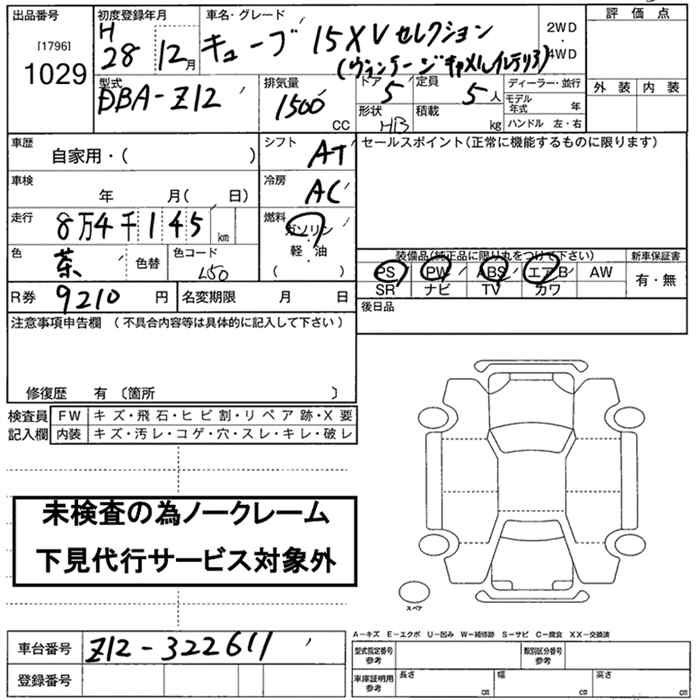 出品番号 [1796] 1029
初度登録年月 H 28 12月
車名・グレード キューブ 15XV セレクション
(ヴィンテージキャメルインテリア)
2WD・4WD
評価点
外装 内装
型式 DBA-Z12
排気量 1500 CC
ドア 5
定員 5人
形状 HB
積載 kg
ディーラー・並行
モデル年式 年
ハンドル 左・右
車歴 自家用・( )
シフト AT
セールスポイント(正常に機能するものに限ります)
車検 年 月( 日)
冷房 AC
走行 8万4千145km
燃料 ガソリン
軽・油
( )
色 茶 色替
色コード L50
装備品(純正品に限り丸をつけて下さい)
PS PW ABS エアB AW
SR ナビ TV カワ
新車保証書
有・無
R券 9210 円
名変期限 月 日
後日品
注意事項申告欄 (不具合内容等は具体的に記入して下さい)
修復歴 有 〔箇所 〕
検査員記入欄
FW キズ・飛石・ヒビ割・リペア跡・X要
内装 キズ・汚レ・コゲ・穴・スレ・キレ・破レ
未検査の為ノークレーム
下見代行サービス対象外
スペア
A-キズ E-エクボ U-凹み W-補修跡 S-サビ C-腐食 XX-交換済
車台番号 Z12-322611
登録番号
型式指定番号 参考
類別区分番号 参考
車庫証明用 参考
長さ cm 幅 cm 高さ cm